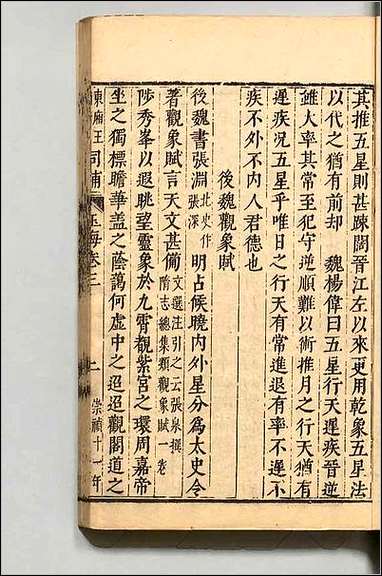 其推五星則甚踈闊晉江左以來更用乾象五星法
以代之猶有前却　魏楊偉曰五星行天遲疾晉逆
錐大率其常至犯守逆順難以術推月之行天猶有
遲疾况五星乎唯日之行天有常進退有率不遲不
疾不外不内人君德也
後魏觀象賦
後魏書張淵北史作張深明占候曉内外星分為太史令
著觀象賦言天文甚備文選注引之云張泉撰隋志總集類觀象賦一卷
陟秀峯以遐眺望靈象於九霄覩紫宮之環周嘉帝
坐之獨標瞻華蓋之蔭藹何虚中之迢迢觀閣道之
東廂王司補　玉海卷三　二　崇禎十一年